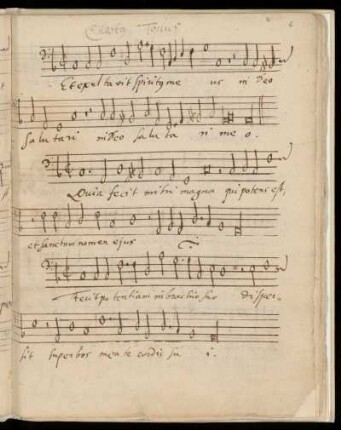 Tonus
Et exultavit spiritus me us in deo
Salutari in deo saluta ri me o.
Quia fecit mihi magna qui potens est,
et sanctum nomen ejus
Fecit potentiam in brachio suo disper-
sit superbos mente cordis su i.